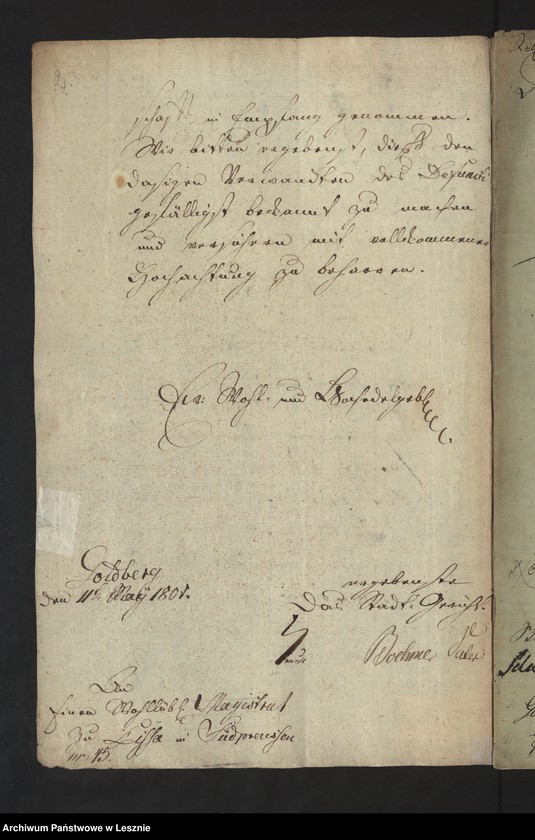 2.
schaft, in Empfang genommen.
Wir bitten ergebenst, dieß den
dasigen Verwandten des Defuncti
gefälligst bekannt zu machen
und mit vollkommener
Hochachtung zu beharren.
Ew: Wohl- und Hochedelgeb.
Goldberg
den 11t May 1801.
ergebenste
Das Stadt-Gericht.
Boehmer
An
Einen Wohllöbl. Magistrat
zu Lissa in Südpreussen
nr. 45.
Archiwum Państwowe w Lesznie